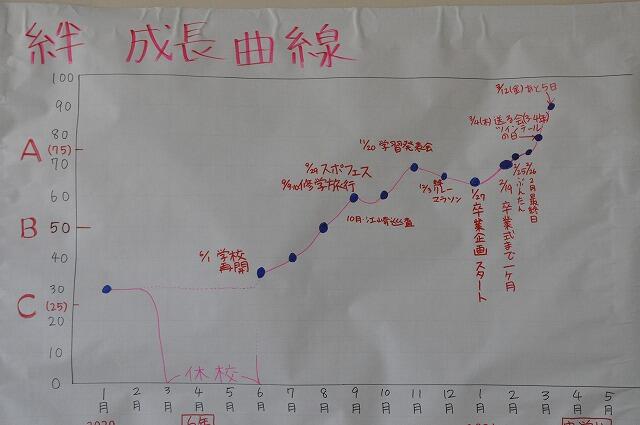 絆 成長曲線
100
90
80
A (75)
70
60
B 50
40
30
C (25)
20
10
0
休校
6/1 学校
再開
9/29 スポフェス
修学旅行
11/20 学習発表会
リレー
マラソン
1/27 卒業企画スタート
2/19 卒業式まで一ヶ月
2/25 ぶんたん
2/26 2月最終日
3/4(木) 送る会(3・4年)
ツインテール
の日
3/12(金)あと5日
1月 2月 3月 4月 5月 6月 7月 8月 9月 10月 11月 12月 1月 2月 3月 4月 5月
6年